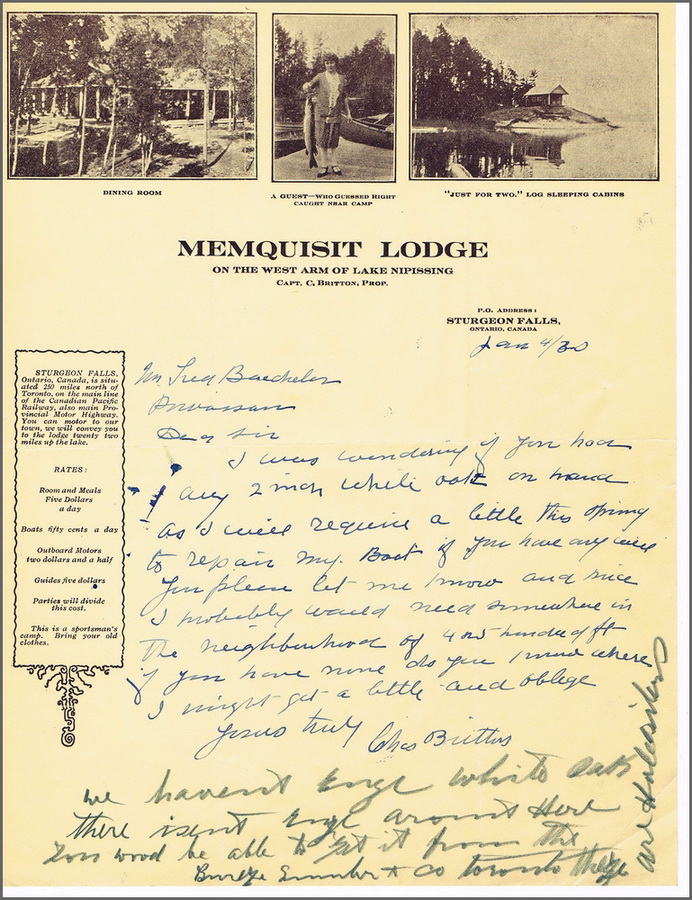 DINING ROOM
A GUEST—WHO GUESSED RIGHT
CAUGHT NEAR CAMP
"JUST FOR TWO." LOG SLEEPING CABINS
MEMQUISIT LODGE
ON THE WEST ARM OF LAKE NIPISSING
CAPT. C. BRITTON, PROP.
P.O. ADDRESS:
STURGEON FALLS,
ONTARIO, CANADA
Jan 4/30
STURGEON FALLS,
Ontario, Canada, is situ-
ated 250 miles north of
Toronto, on the main line
of the Canadian Pacific
Railway, also main Pro-
vincial Motor Highway.
You can motor to our
town, we will convey you
to the lodge twenty two
miles up the lake.
RATES:
Room and Meals
Five Dollars
a day
Boats fifty cents a day
Outboard Motors
two dollars and a half
Guides five dollars
Parties will divide
this cost.
This is a sportsman's
camp. Bring your old
clothes.
Mr Fred Baechler
Dear Sir
I was wondering if you had
any 2 inch white oak on hand
as I will require a little this spring
to repair my Boat if you have any will
you please let me know and price
I probably would need somewhere in
the neighbourhood of 4 or 5 hundred ft
if you have none do you know where
I might get a little and oblige
Yours truly Chas Britton
we havent enye white oak
there isent enye around Here
you wood be able to get it from the
& Co toronto they
are